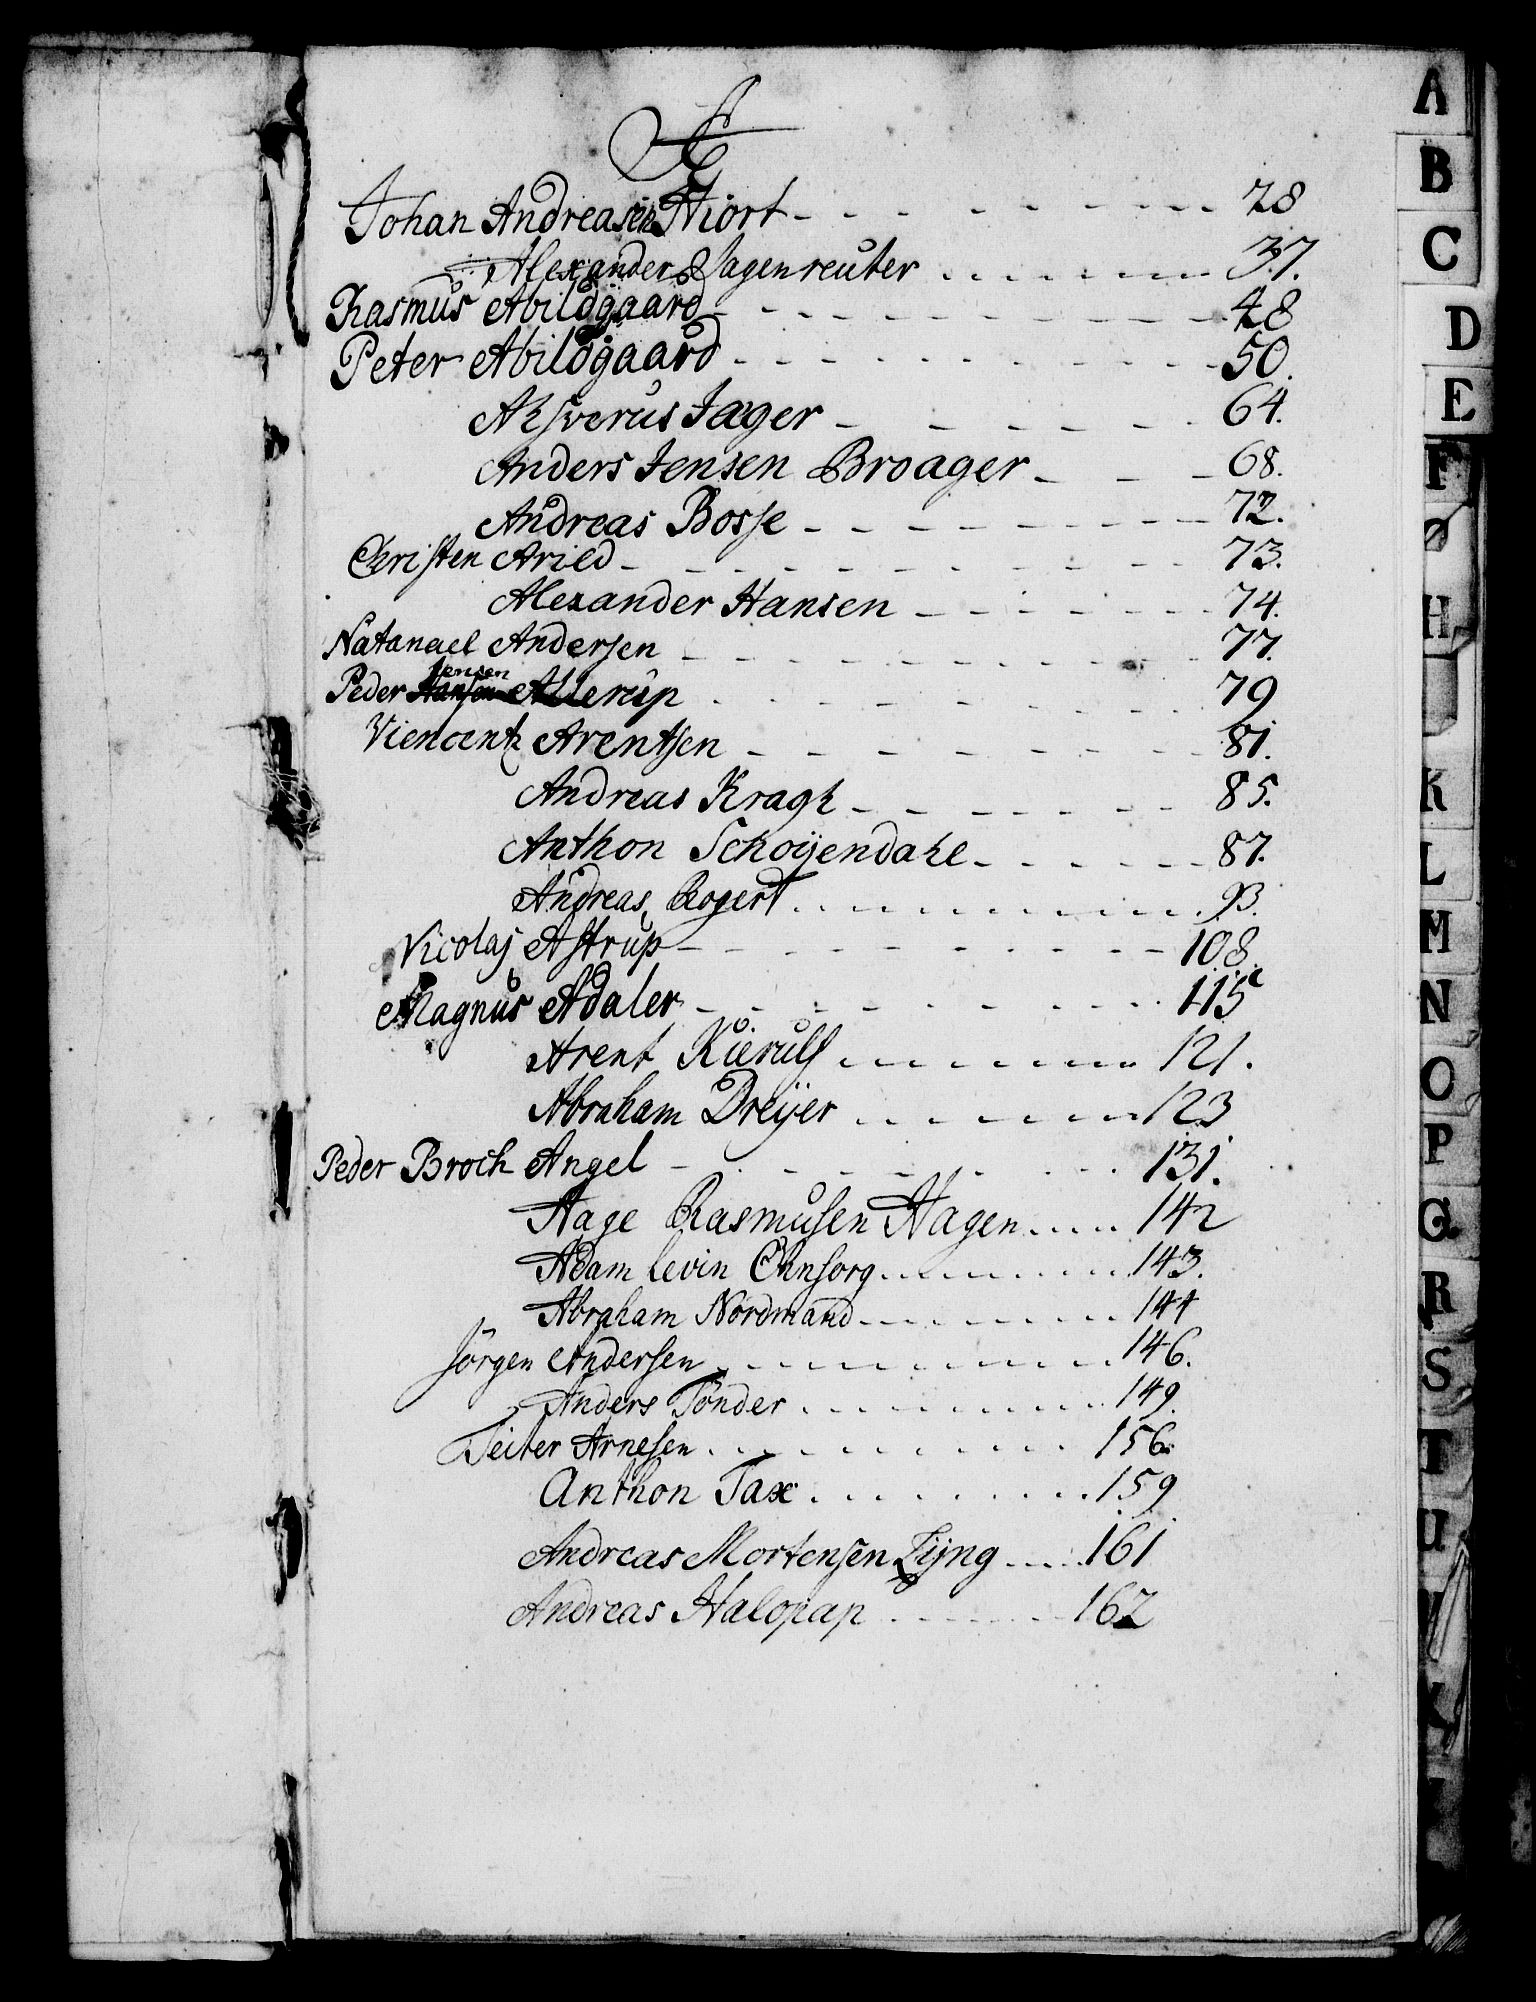 A
Johan Andreasen Hiort 28
Alexander Hagenreuter 37.
Rasmus Abildgaard 48
Peter Abildgaard 50.
Ahsverus Jæger 64.
Anders Jensen Broager 68.
Andreas Bosse 72.
Christen Arild 73.
Alexander Hansen 74.
Natanael Andersen 77.
Jensen
Peder Hansen Allerup 79
Viencentz Arentsen 81.
Andreas Kragh 85.
Anthon Schoijendahl 87.
Andreas Rogert 93.
Nicolaj Astrup 108
Magnus Adaler 115
Arent Kierulf 121.
Abraham Dreijer 123
Peder Broch Angel 131.
Aage Rasmusen Hagen 142
Adam Levin Ohnsorg 143.
Abraham Nordmand 144
Jörgen Andersen 146.
Anders Tönder 149.
Teiter Arnesen 156.
Anthon Tax 159
Andreas Mortensen Lijng 161
Andreas Halopap 162
A
B
C
D
E
F
H
K
L
M
N
O
P
Q
R
S
T
U